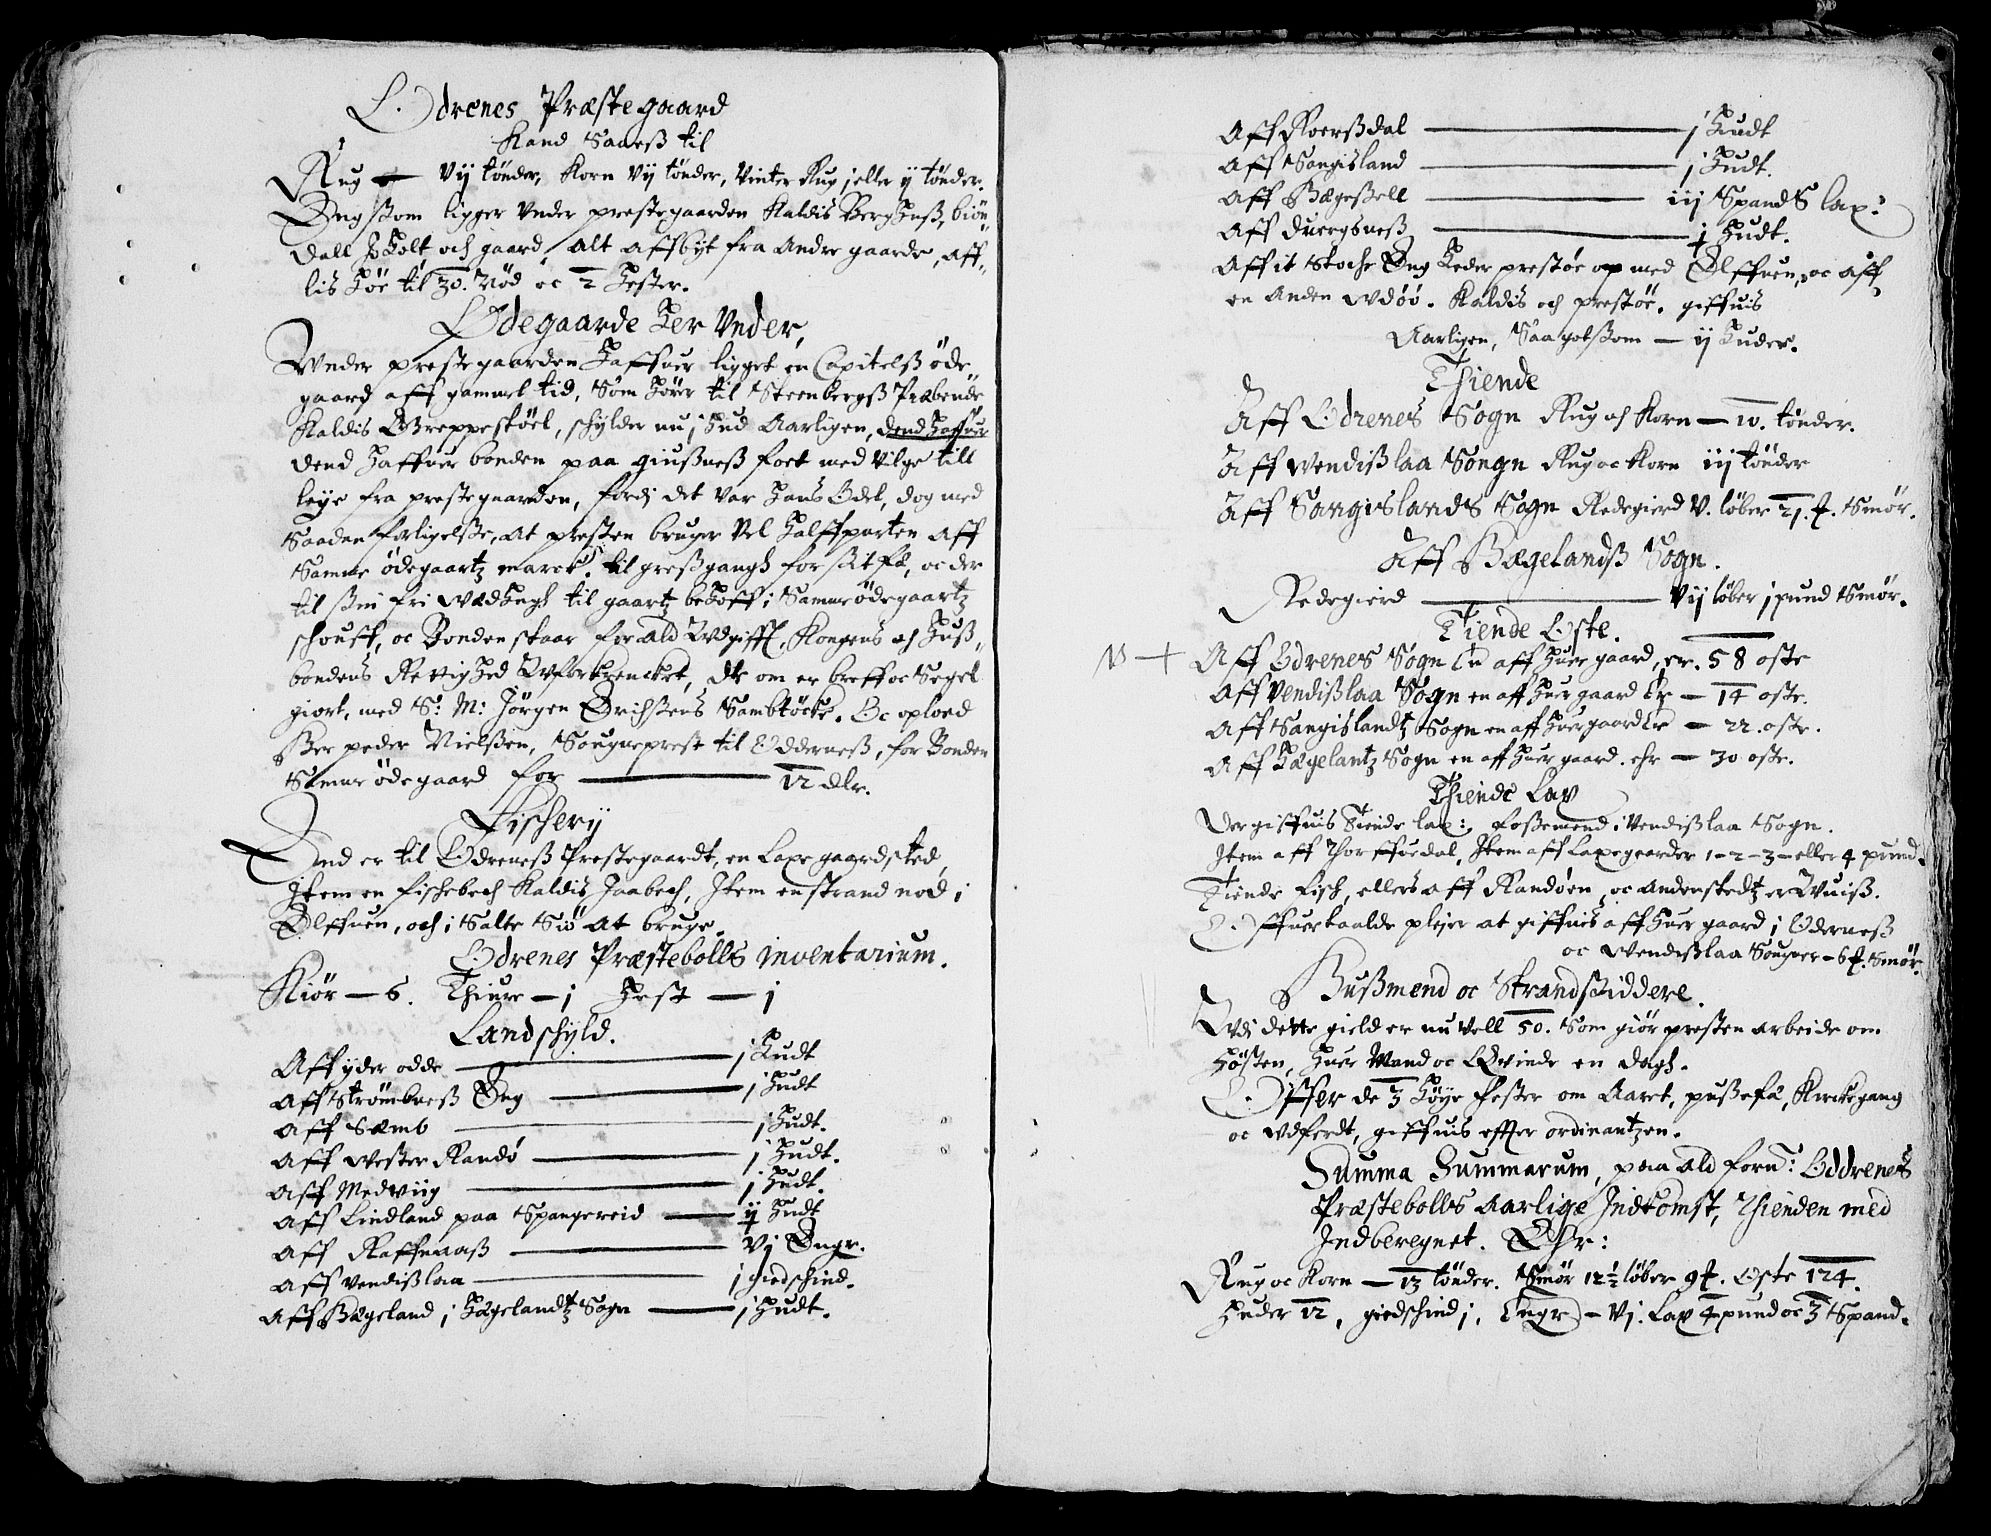 Odrenes Præstegaard
Kand Saaeß til
Rug vij tönder, Korn vij tönder, Vinter Rug j eller ij tönder.
Eng ßom ligger vnder prestegaarden Kaldis Berghuß, biön
dall holt och gaard, alt affbyt fra andre gaarde, aff„
lis höe til 30. Nöd oc 2 hester.
Ödegaarde her vnder,
Wnder prestegaarden haffuer ligget en Capitelß öde„
gaard aff gammel tid, Som hörer til Steenbergß Præbende
Kaldis Greppestöel, schylder nu j hud Aarligen, dend haffuer
dend haffuer bonden paa giußneß foet med vilge till
leye fra prestegaarden, fordj det var hans Odel, dog med
Saadan forligelße, at presten bruger vel halffparten aff
Samme ödegaartz marck. til greßgangh for sit fæ, oc der
til sin fri wedhugh til gaartz behoff i Samme ödegaartz
schouff, oc Bonden staar for ald Wdgifft, Kongens och huß„
bondens Rettighed Wforkrencket, der om er breff oc Segel
giort, med S: M: Jörgen Erichßens Sambtöcke. Oc oploed
Her peder Nielßen, Sougneprest til Odderneß, for Bonden
Samme ödegaard for 12 dlr.
Fischerij
End er til Odreneß Prestegaardt, en Laxe gaardsted,
Item en fischebech Kaldis Jaabech, Item en strand nod i
Elffuen, och i Salte Siö at bruge.
Odrenes Præstebolls inventarium.
Kiör — 6. Thiure — j Hest — j
Landschyld.
Aff yder odde j Hudt
Aff Strömbneß Eng j Hudt
Aff Sæmb j Hudt.
Aff Wester Randö j Hudt.
Aff Medviig j Hudt.
Aff Lindland paa Spangereid ij Hudt
Aff Raffnaaß vj Engr.
Aff Vendißlaa j giedschind.
Aff Hægeland j Hægelandtz Sogn j Hudt.
Aff Roerßdal j Hudt
Aff Songisland j Hudt.
Aff Bægeßell iij Spands lax:
Aff Duergsneß j Hudt.
Aff it Stoche Eng neder prestöe op med Elffuen, oc aff
en Anden Wdöö. Kaldis och prestöe. giffuis
Aarligen, Saagotßom — ij Huder.
Thiende
Aff Odrenes Sogn Rug och Korn — 10. tönder.
Aff Wendißlaa Songn Rug oc Korn iij tönder
Aff Sangislands Sogn Redegierd v. löber 21. ℔. Smör.
Aff Hægelandß Sogn.
Redegierd vij löber j pund Smör.
Tiende Oste.
NB + Aff Odrenes Sogn En aff huer gaard, er. 58 oste
Aff Vendißlaa Sogn en aff huer gaard Er — 14 oste.
Aff Sangislandtz Sogn en aff huer gaard Er — 22. oste.
Aff Hægelantz Sogn en aff huer gaard. ehr — 30 oste.
Thiende Lax
Der giffuis Tiende lax: foßemend i Vendißlaa Sogn.
Item aff Thorffuedal, Item aff Laxegaarder 1-2-3- eller 4 pund.
Tiende fisch, ellers aff Randöen, oc andenstedtz er Wuiß.
Offuerkaalde plejer at giffuis aff huer gaard j Oderneß
oc Wendißlaa Sougner — 6 ℔. Smör.
Hußmend oc Strandßiddere.
Wdj dette gield er nu vell 50. Som giör presten arbeide om
Hösten, huer Mand oc Qvinde en Dagh.
Offer de 3 höye fester om Aaret, pußefæ, Kirckegang
oc Wdferdt, giffuis effter ordinantzen.
Summa Summarum, paa ald forn: Oddrenes
Præstebolls Aarlige Indkomst, Thienden med
Indberegnet. Ehr:
Rug oc Korn — 13 tönder. Smör 12½ löber 9 ℔. Oste 124.
Huder 12, giedschind j. Engr — vj. Lax 4 pund oc 3 Spand.